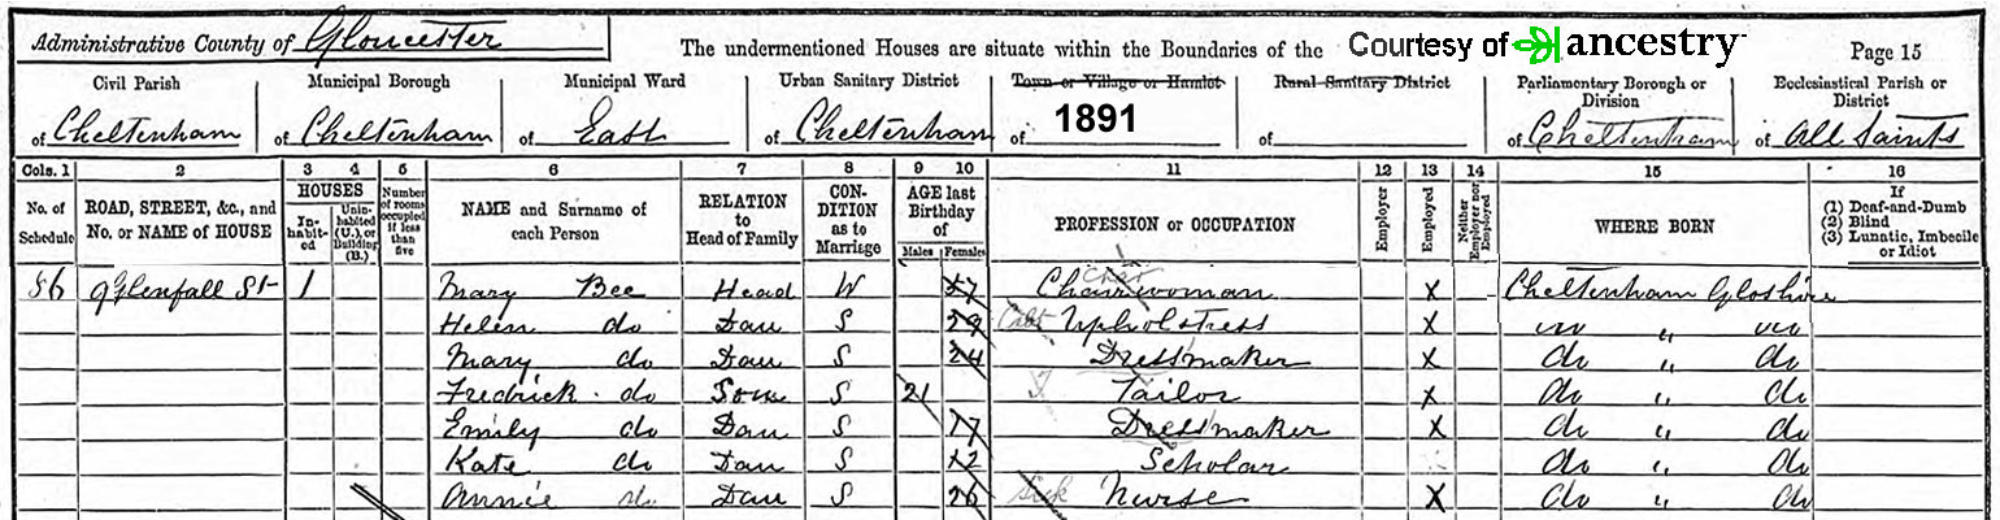 Administrative County of Gloucester The undermentioned Houses are situate within the Boundaries of the Courtesy of ancestry Page 15
Civil Parish Municipal Borough Municipal Ward Urban Sanitary District Town or Village or Hamlet Rural Sanitary District Parliamentary Borough or Division Ecclesiastical Parish or District
of Cheltenham of Cheltenham of East of Cheltenham of 1891 of of Cheltenham of All Saints
Cols. 1 2 3 4 5 6 7 8 9 10 11 12 13 14 15 16
No. of Schedule ROAD, STREET, &c., and No. or NAME of HOUSE HOUSES Inhabited Uninhabited (U.), or Building (B.) Number of rooms occupied if less than five NAME and Surname of each Person RELATION to Head of Family CONDITION as to Marriage AGE last Birthday of Males Females PROFESSION or OCCUPATION Employer Employed Neither Employer nor Employed WHERE BORN If (1) Deaf-and-Dumb (2) Blind (3) Lunatic, Imbecile or Idiot
86 9 Glenfall St 1 Mary Bee Head W 57 Charwoman X Cheltenham Gloshire
Helen do Dau S 29 Upholstress X do " do
Mary do Dau S 24 Dressmaker X do " do
Fredrick do Son S 21 Tailor X do " do
Emily do Dau S 17 Dressmaker X do " do
Kate do Dau S 12 Scholar do " do
Annie do Dau S 26 Sick Nurse X do " do